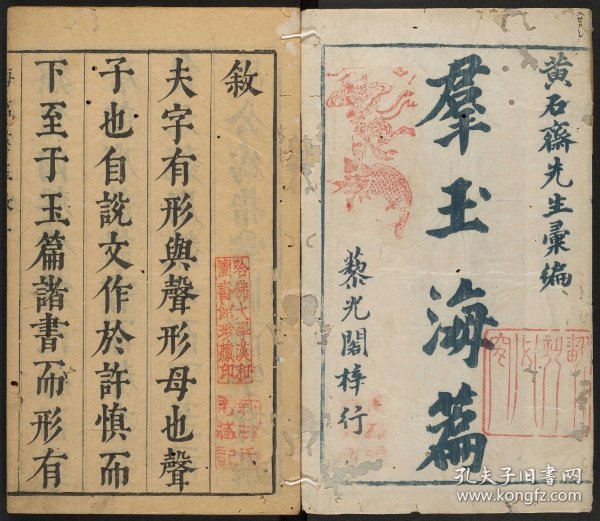 黄石齋先生彙編
羣玉海篇
藜光閣梓行
敘
夫字有形與聲形母也聲
子也自說文作於許慎而
下至于玉篇諸書而形有
哈佛大學漢和
圖書館珍藏印
孔夫子旧书网
www.kongfz.com